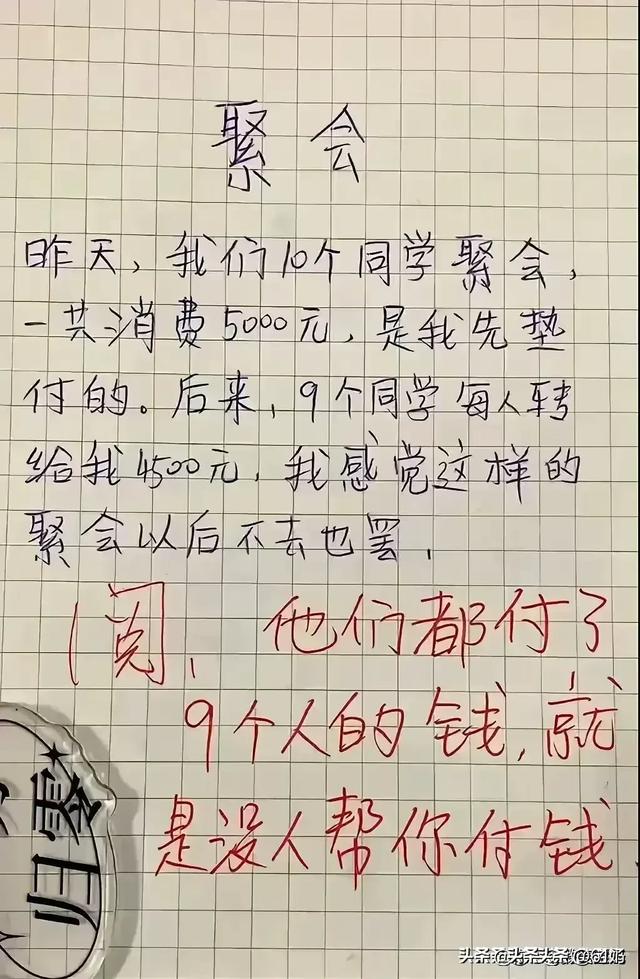 聚会
昨天，我们10个同学聚会，
一共消费5000元，是我先垫
付的。后来，9个同学每人转
给我4500元，我感觉这样的
聚会以后不去也罢，
阅，他们都付了
9个人的钱，就
是没人帮你付钱
归零